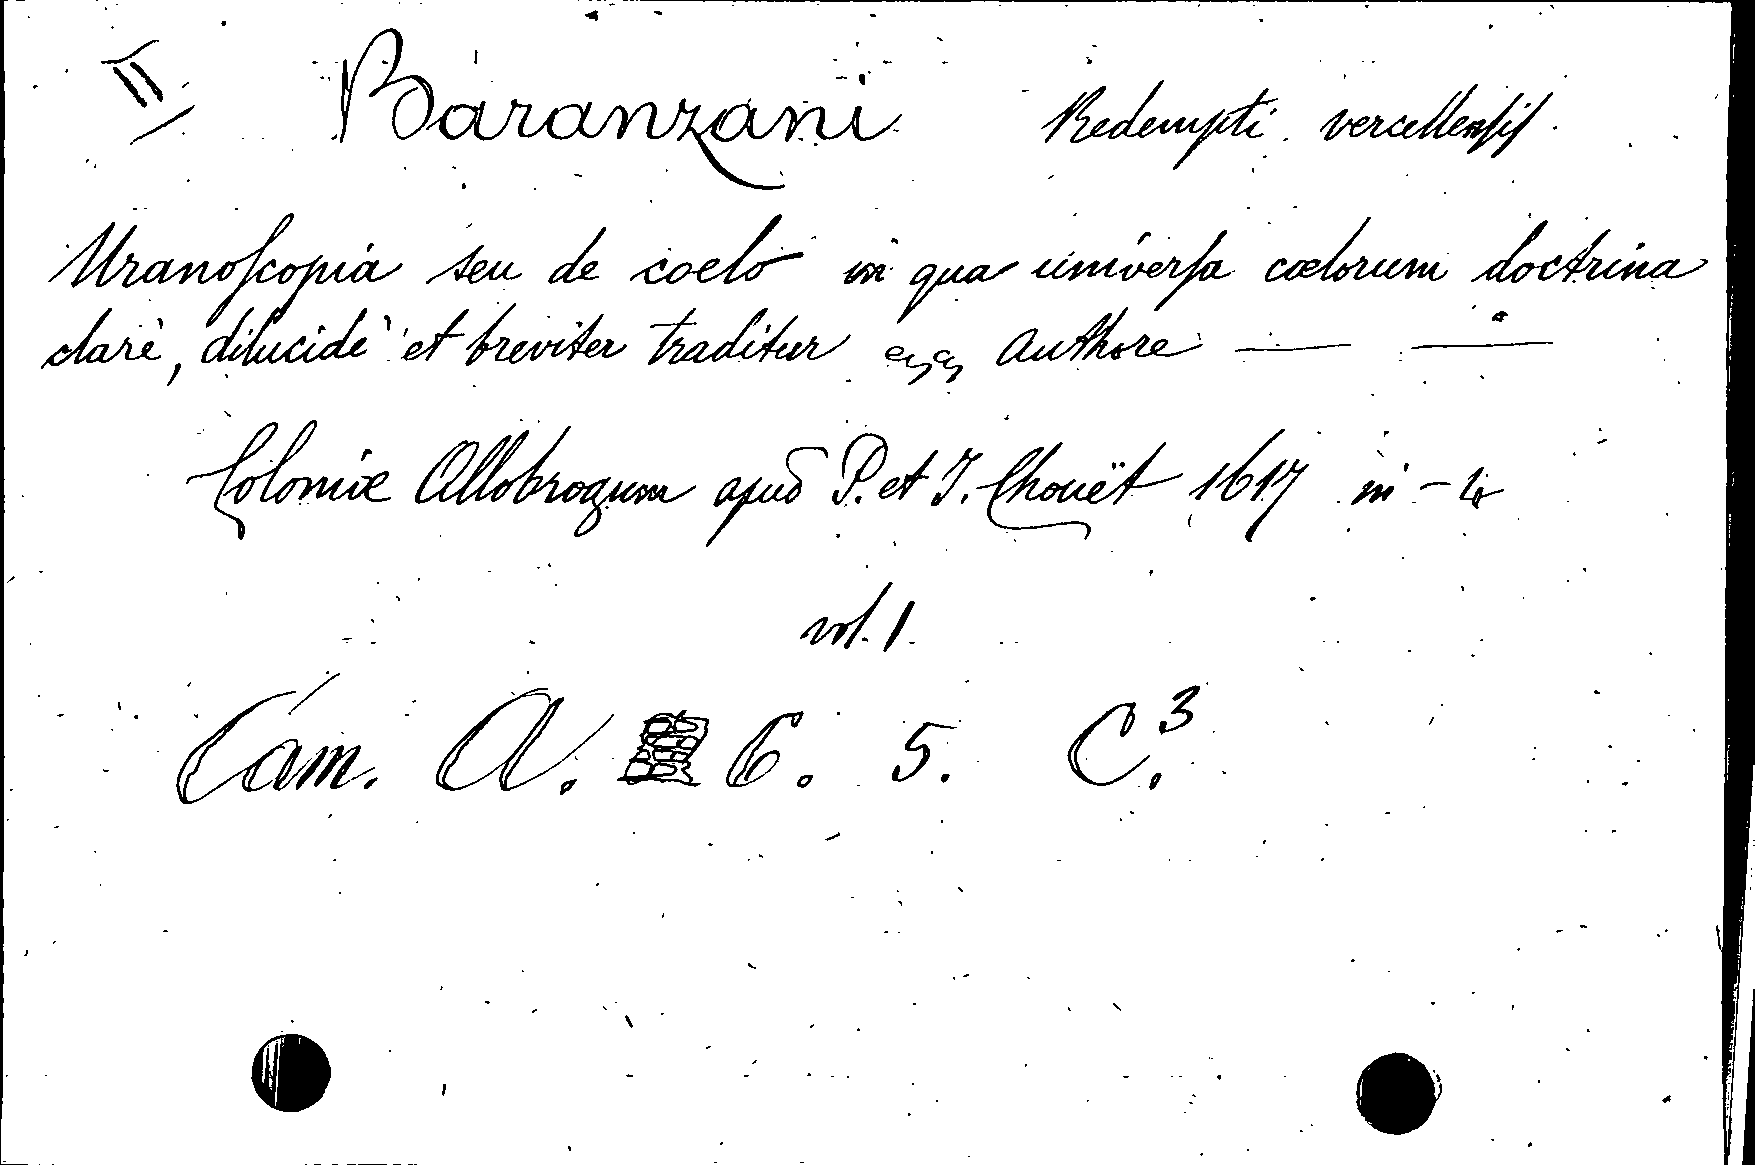 II Baranzani Redempti vercellensis
Uranoſcopia seu de coelo in qua univerſa cœlorum doctrina
clarè, dilucidè et breviter traditur &c &c Authore — —
Coloniæ Allobrogum apud P. et J. Chouët 1617 in-4
vol. 1.
Cam. A. 6. 5. C.³